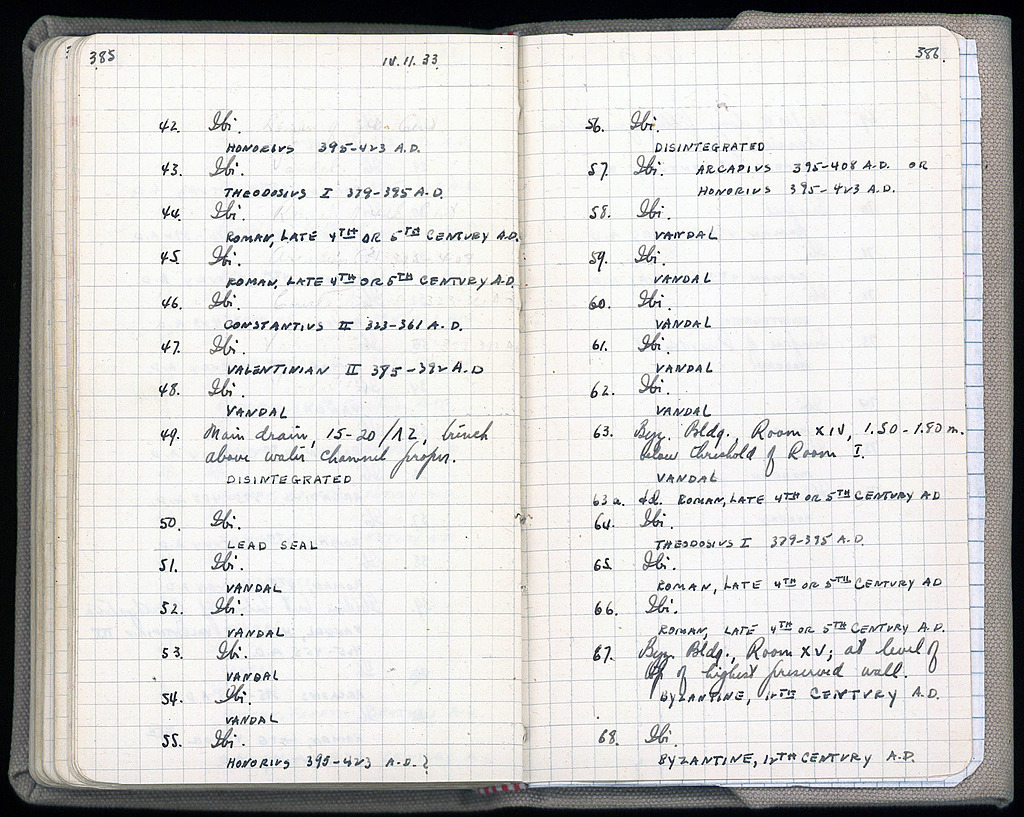 385
IV.11.33
42. Ibi.
HONORIUS 395-423 A.D.
43. Ibi.
THEODOSIUS I 379-395 A.D.
44. Ibi.
ROMAN, LATE 4TH OR 5TH CENTURY A.D.
45. Ibi.
ROMAN, LATE 4TH OR 5TH CENTURY A.D.
46. Ibi.
CONSTANTIUS II 323-361 A.D.
47. Ibi.
VALENTINIAN II 375-392 A.D
48. Ibi.
VANDAL
49. Main drain, 15-20/ΛΖ, trench
above water channel proper.
DISINTEGRATED
50. Ibi.
LEAD SEAL
51. Ibi.
VANDAL
52. Ibi.
VANDAL
53. Ibi.
VANDAL
54. Ibi.
VANDAL
55. Ibi.
HONORIUS 395-423 A.D.?
386.
56. Ibi.
DISINTEGRATED
57. Ibi. ARCADIUS 395-408 A.D. OR
HONORIUS 395-423 A.D.
58. Ibi.
VANDAL
59. Ibi.
VANDAL
60. Ibi.
VANDAL
61. Ibi.
VANDAL
62. Ibi.
VANDAL
63. Byz. Bldg., Room XIV, 1.50-1.80 m.
below threshold of Room I.
VANDAL
63a. ROMAN, LATE 4TH OR 5TH CENTURY AD
64. Ibi.
THEODOSIUS I 379-395 A.D.
65. Ibi.
ROMAN, LATE 4TH OR 5TH CENTURY AD
66. Ibi.
ROMAN, LATE 4TH OR 5TH CENTURY A.D.
67. Byz. Bldg., Room XV; at level of
top of highest preserved wall.
BYZANTINE, 12TH CENTURY A.D.
68. Ibi.
BYZANTINE, 12TH CENTURY A.D.